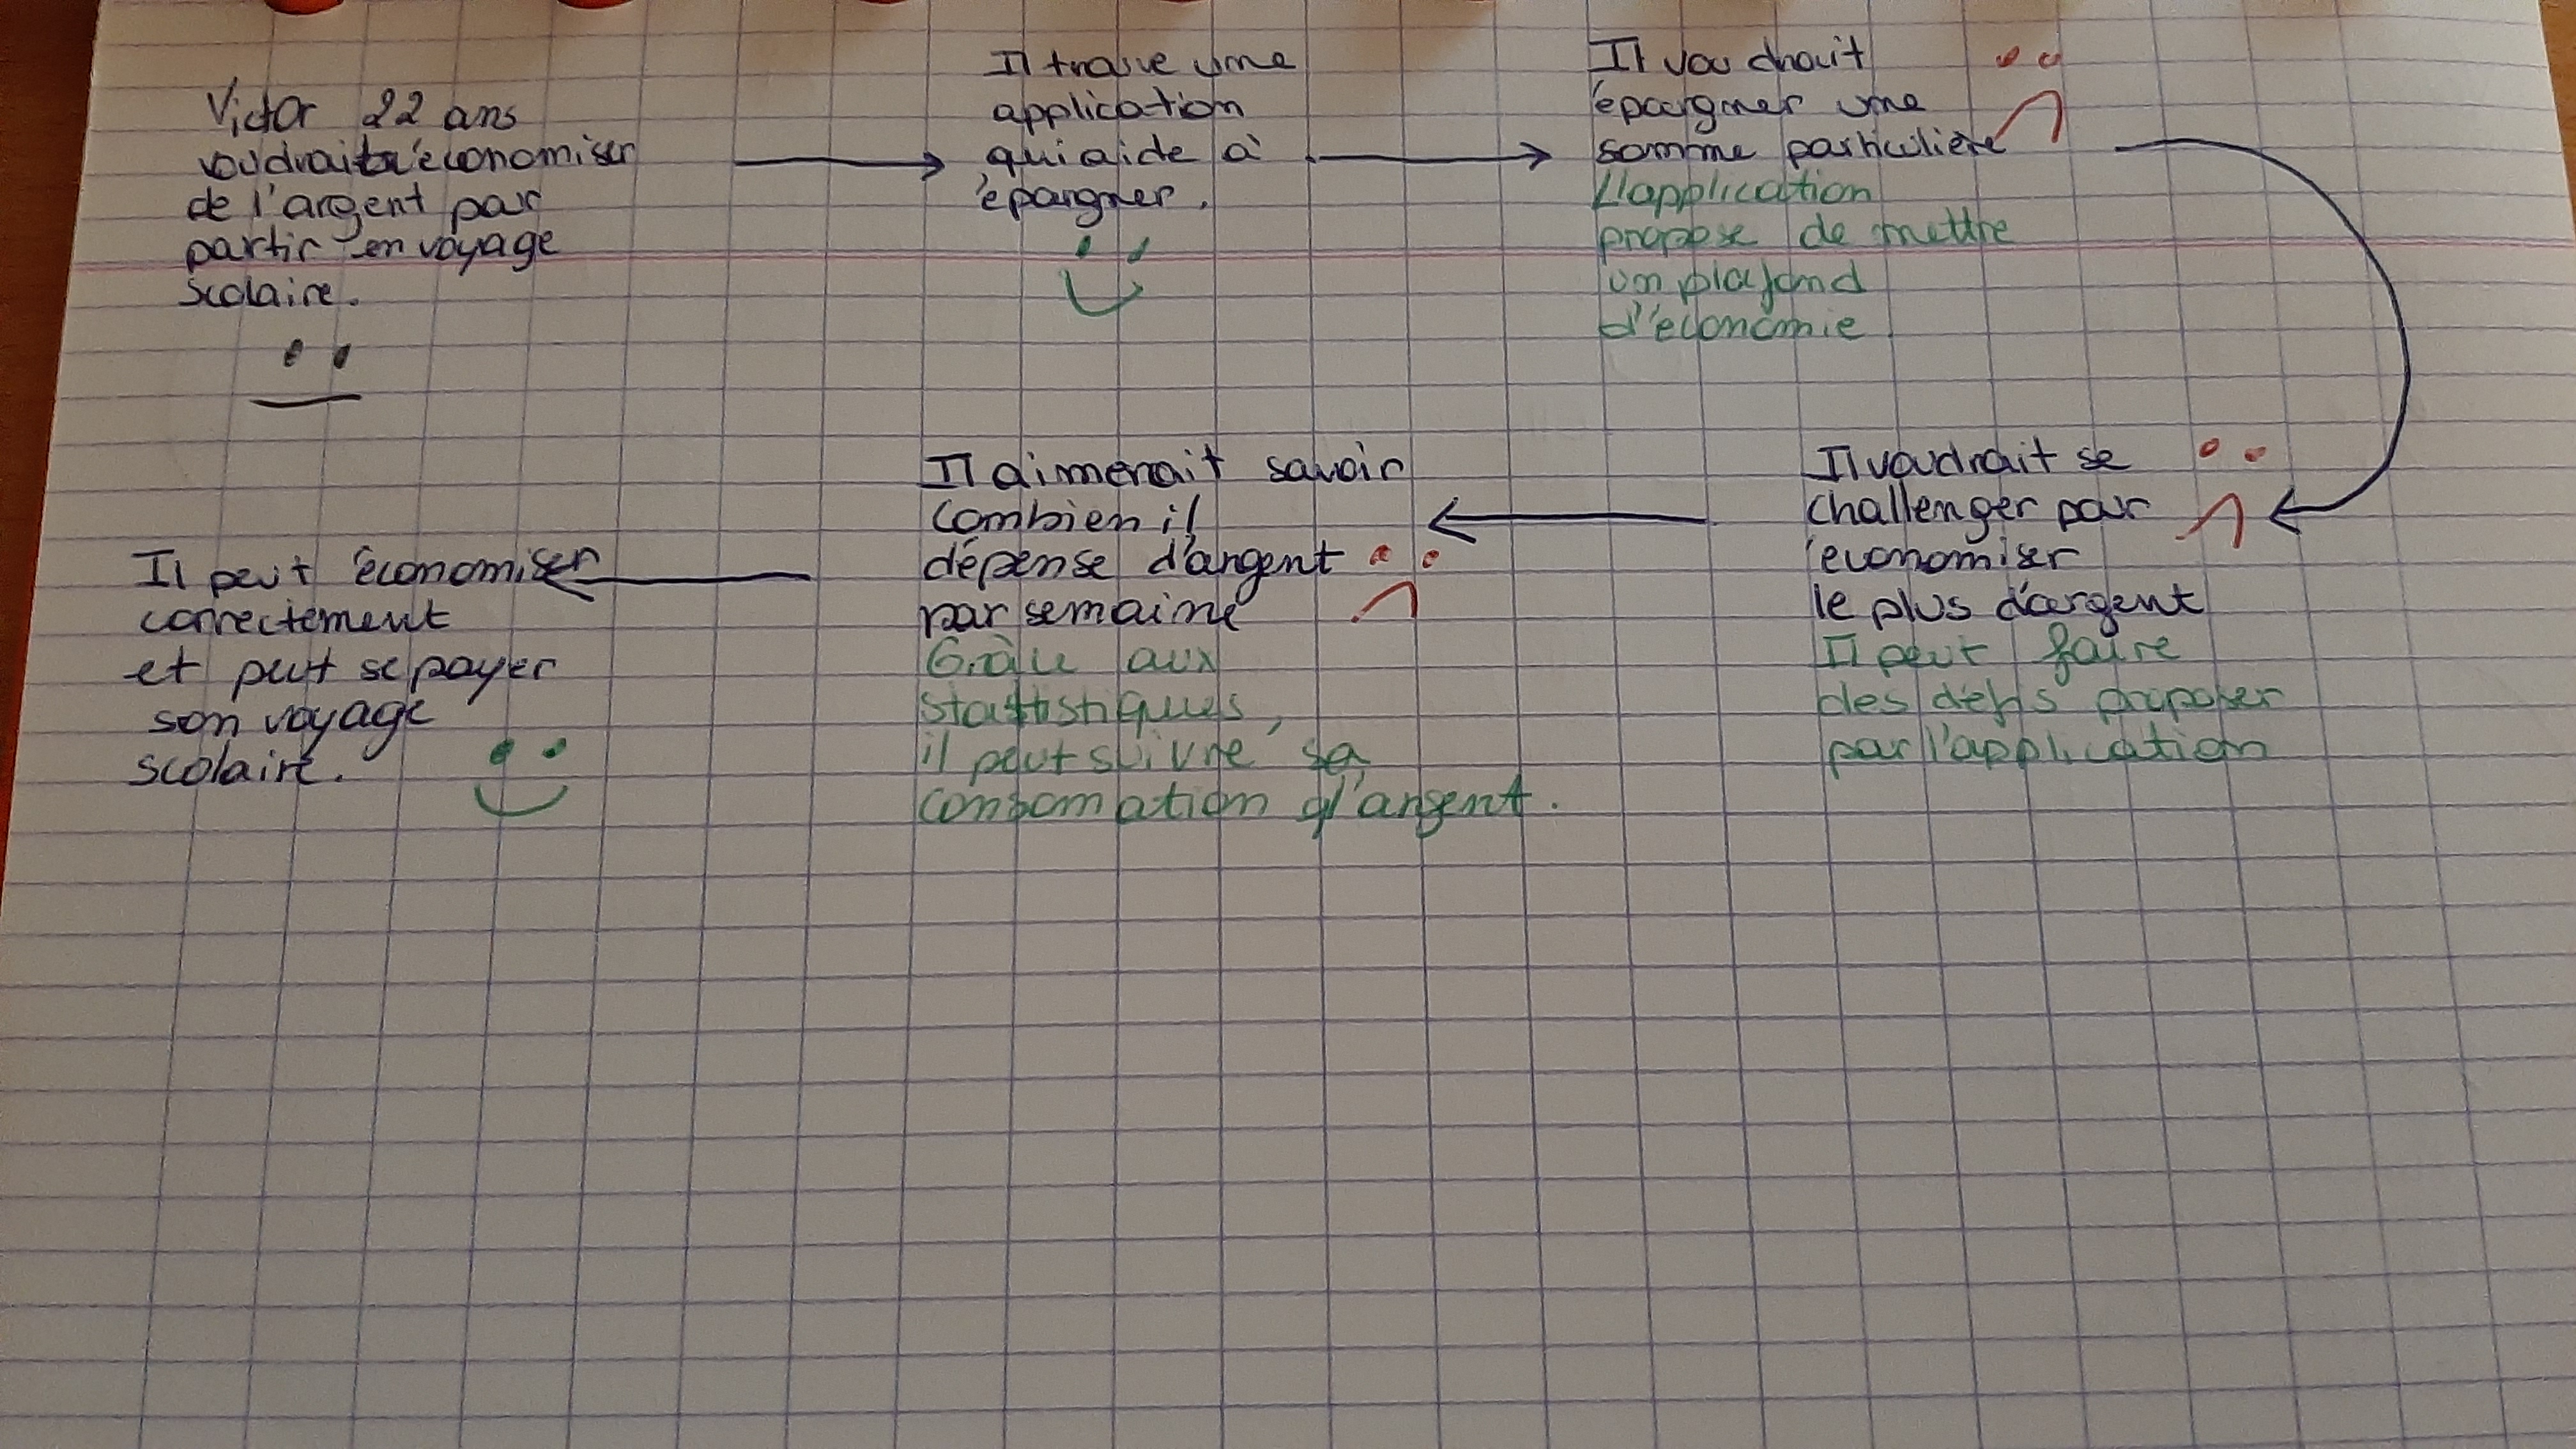 Victor 22 ans
voudrait économiser
de l'argent par
partir en voyage
scolaire.
Il trouve une
application
qui aide à
épargner.
Il voudrait
épargner une
somme particulière
L'application
propose de mettre
un plafond
d'économie.
Il voudrait se
challenger pour
économiser
le plus d'argent
Il peut faire
des défis proposer
par l'application
Il aimerait savoir
combien il
dépense d'argent
par semaine
Grâce aux
statistiques,
il peut suivre sa
consomation d'argent.
Il peut économiser
correctement
et peut se payer
son voyage
scolaire.